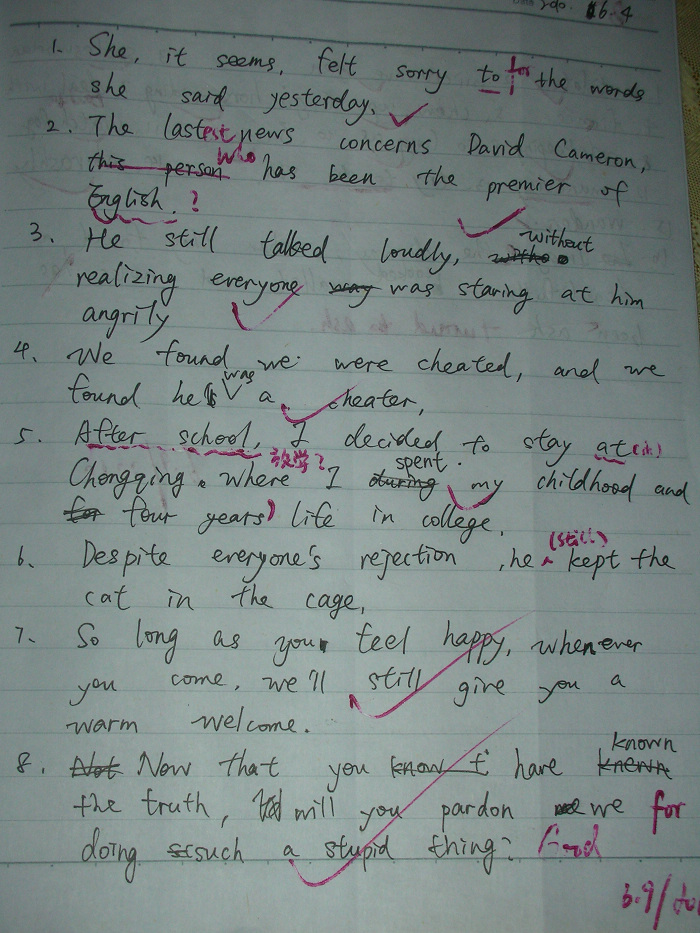 6-4
1. She, it seems, felt sorry to for the words
she said yesterday.
2. The lastest news concerns David Cameron,
this person who has been the premier of
English. ?
3. He still talked loudly, without
realizing everyone way was staring at him
angrily
4. We found we were cheated, and we
found he was a cheater,
5. After school, I decided to stay at (in)
放学?
Chongqing, where I during spent my childhood and
for four years' life in college.
6. Despite everyone's rejection, he (still) kept the
cat in the cage,
7. So long as you feel happy, whenever
you come, we'll still give you a
warm welcome.
8. Not Now that you know t have known
the truth, will you pardon we for
doing such a stupid thing? Good
6.9/